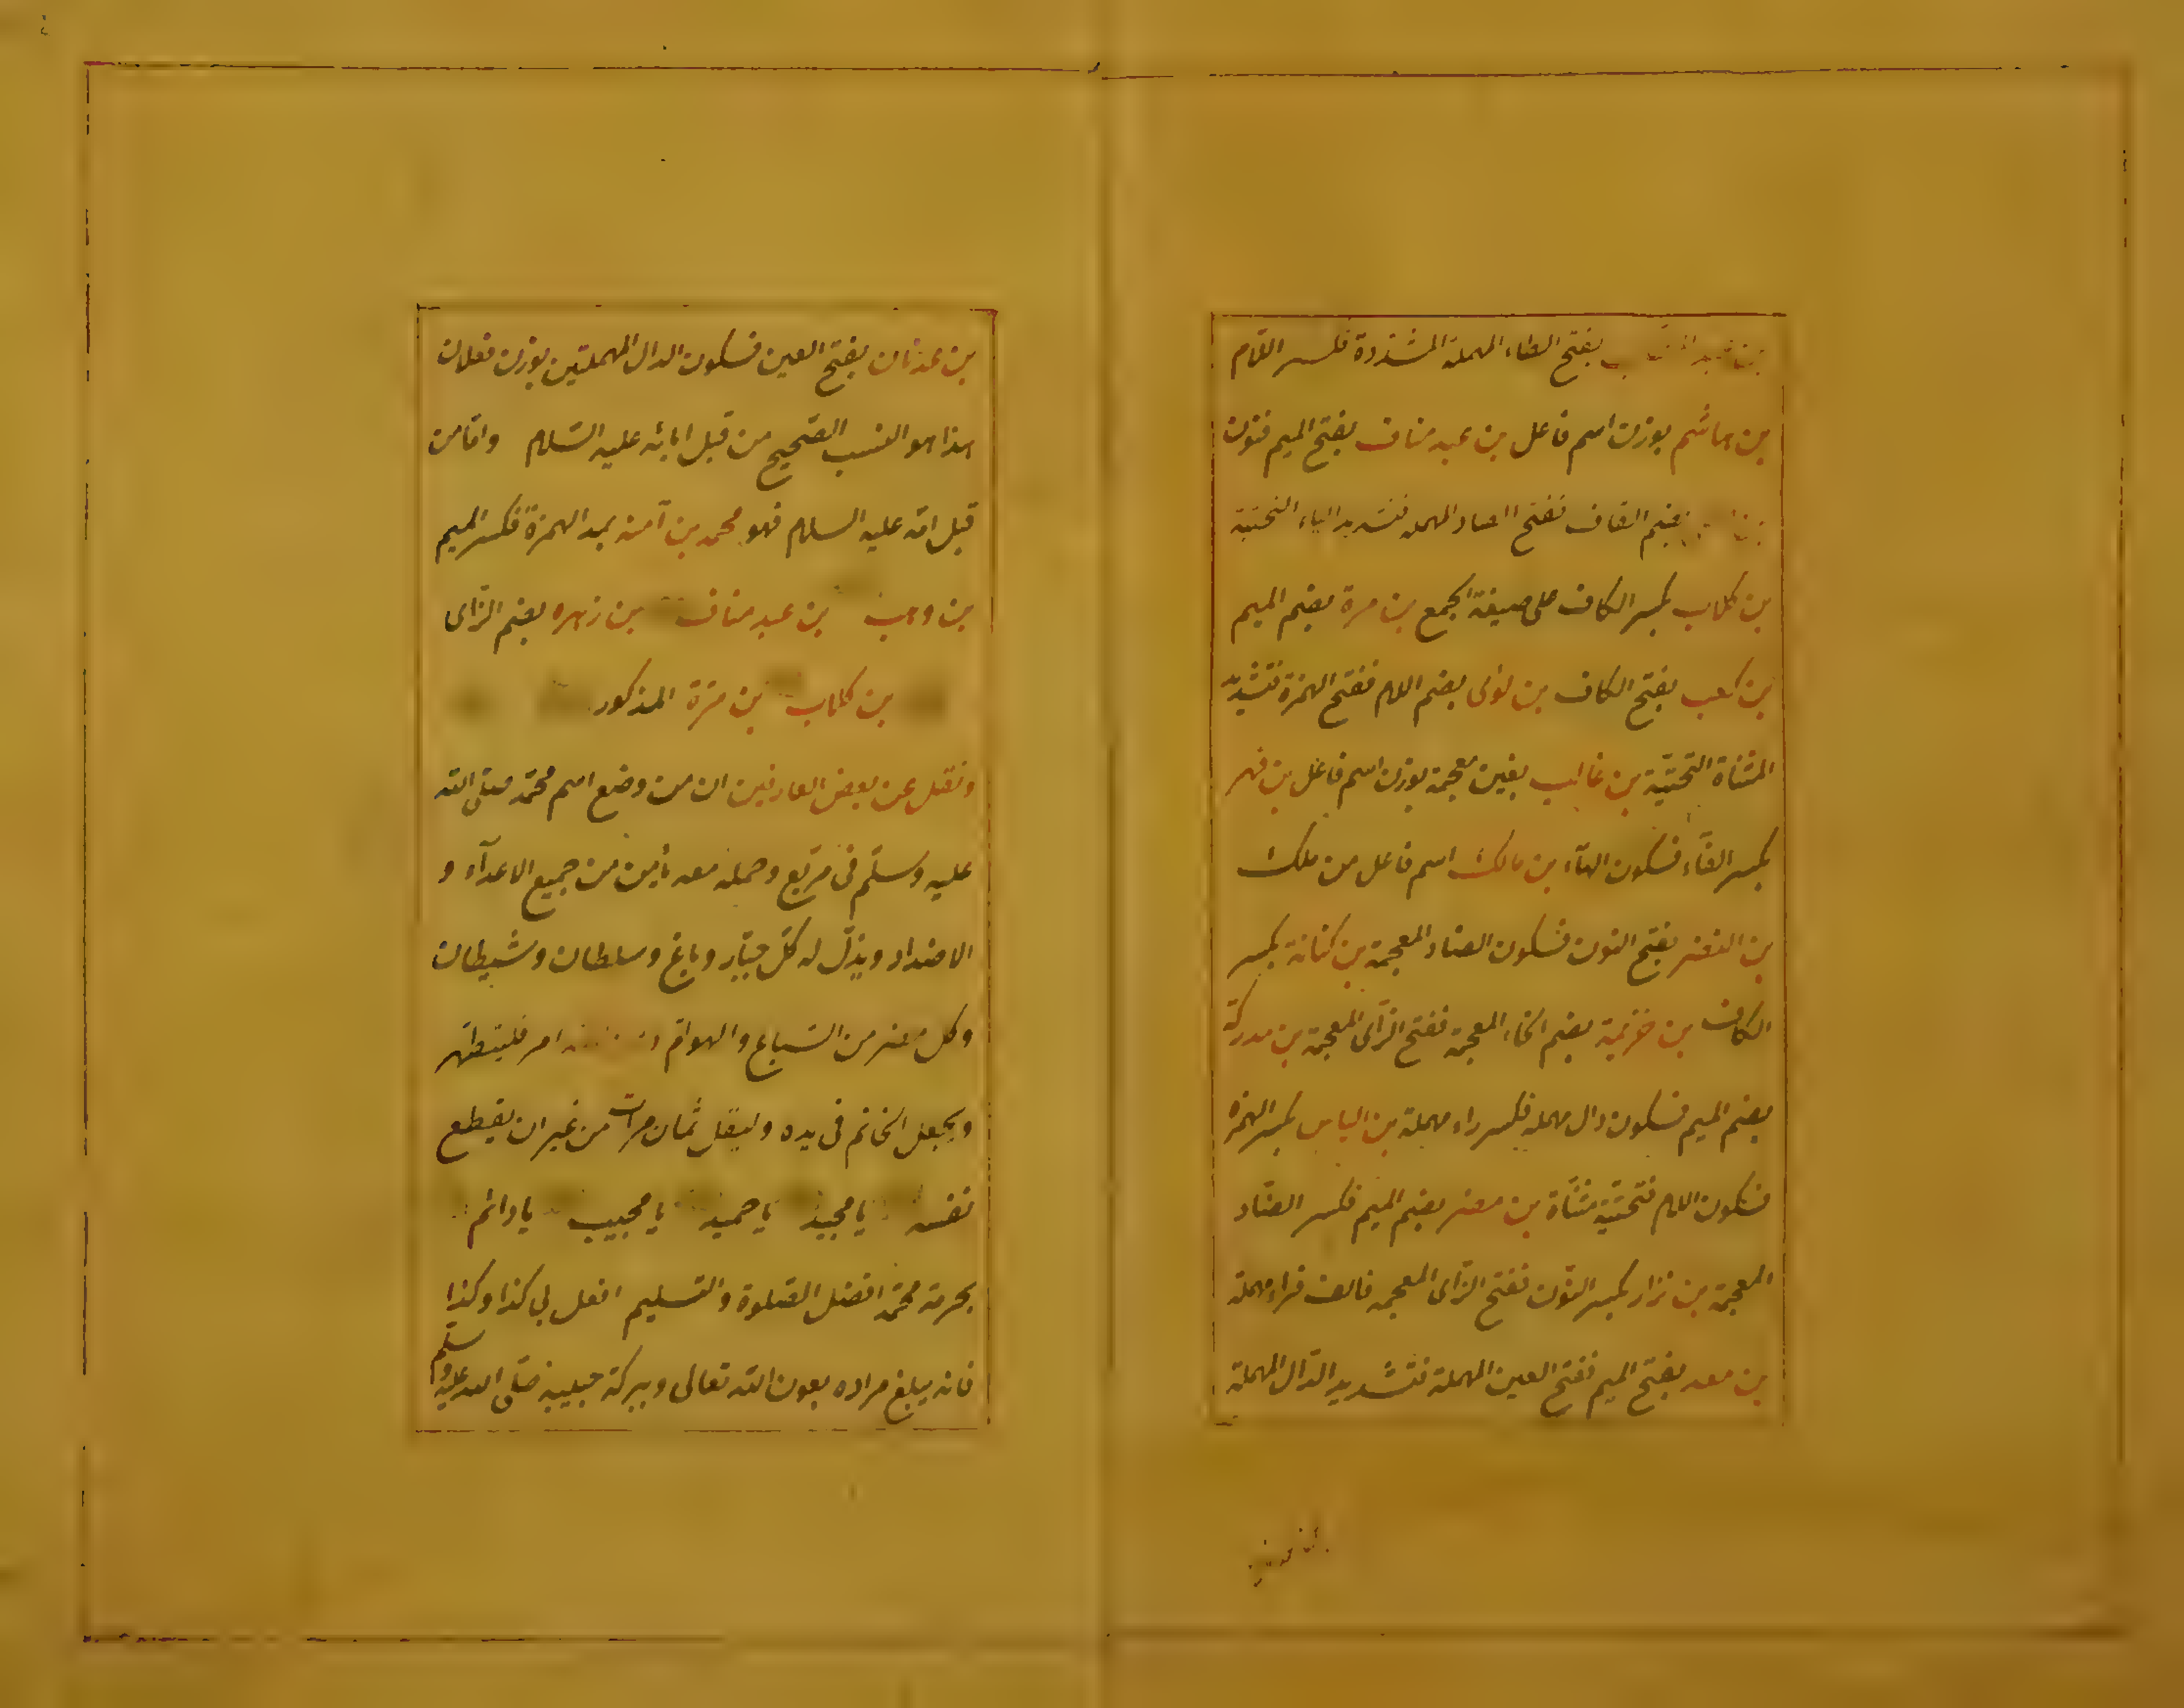 بفتح الطاء المهملة المشددة فكسر اللام
بن هاشم بوزن اسم فاعل بن عبد مناف بفتح الميم فنون
بضم القاف ففتح الصاد المهملة فتشديد الياء التحتية
بن كلاب بكسر الكاف على صيغة الجمع بن مرة بضم الميم
بن كعب بفتح الكاف بن لوى بضم اللام ففتح الهمزة فتشديد
المثناة التحتية بن غالب بغين معجمة بوزن اسم فاعل بن فهر
بكسر الفاء فسكون الهاء بن مالك اسم فاعل من ملك
بن النضر بفتح النون فسكون الضاد المعجمة بن كنانة بكسر
الكاف بن خزيمة بضم الخاء المعجمة ففتح الزاى المعجمة بن مدركة
بضم الميم فسكون دال مهملة فكسر راء مهملة بن الياس بكسر الهمزة
فسكون اللام فتحتية مثناة بن مضر بضم الميم فكسر الضاد
المعجمة بن نزار بكسر النون ففتح الزاى المعجمة فالف فراء مهملة
بن معد بفتح الميم ففتح العين المهملة فتشديد الدال المهملة
بن عدنان بفتح العين فسكون الدال المهملتين بوزن فعلان
هذا هو النسب الصحيح من قبل ابائه عليه السلام واما من
قبل امه عليه السلام فهو محمد بن آمنه بمد الهمزة فكسر الميم
بن وهب بن عبد مناف بن زهره بضم الزاى
بن كلاب بن مرة المذكور
ونقل عن بعض العارفين ان من وضع اسم محمد صلى الله
عليه وسلم فى مربع وحمله معه يأمن من جميع الاعدآء و
الاضداد ويذل له كل جبار وباغ وسلطان وشيطان
وكل مضر من السباع والهوام امر فليتطهر
ويجعل الخاتم فى يده وليقل ثمان مرات من غير ان يقطع
نفسه يا مجيد يا حميد يا مجيب يا دائم
بحرمة محمد افضل الصلوة والتسليم افعل لى كذا وكذا
فانه يبلغ مراده بعون الله تعالى وببركة حبيبه صلى الله عليه وسلم